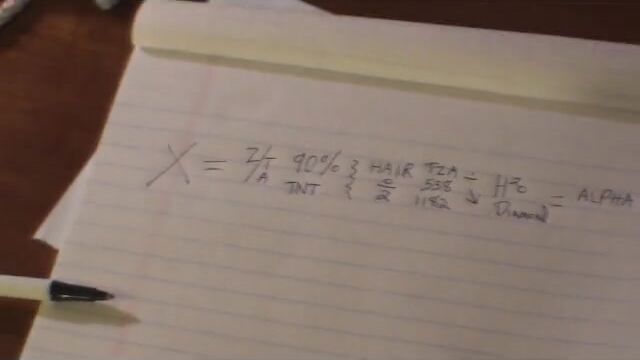 X = I/T 90% } HAIR TZA ÷ H2O = ALPHA
A TNT { 0/2 538 ↘ Diamond
1182